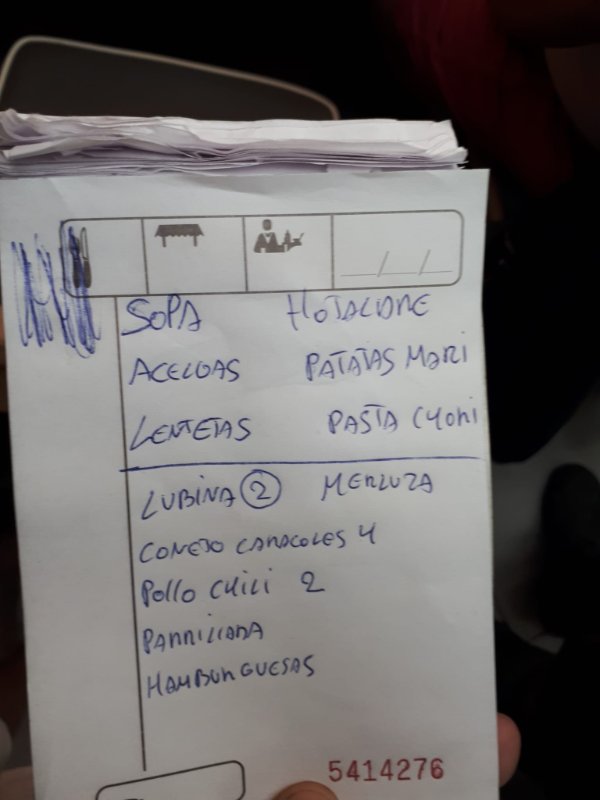 SOPA HOTALIANE
ACELGAS PATATAS MARI
LENTEJAS PASTA CHORI
LUBINA 2 MERLUZA
CONEJO CARACOLES 4
POLLO CHILI 2
PARRILLADA
HAMBURGUESAS
5414276